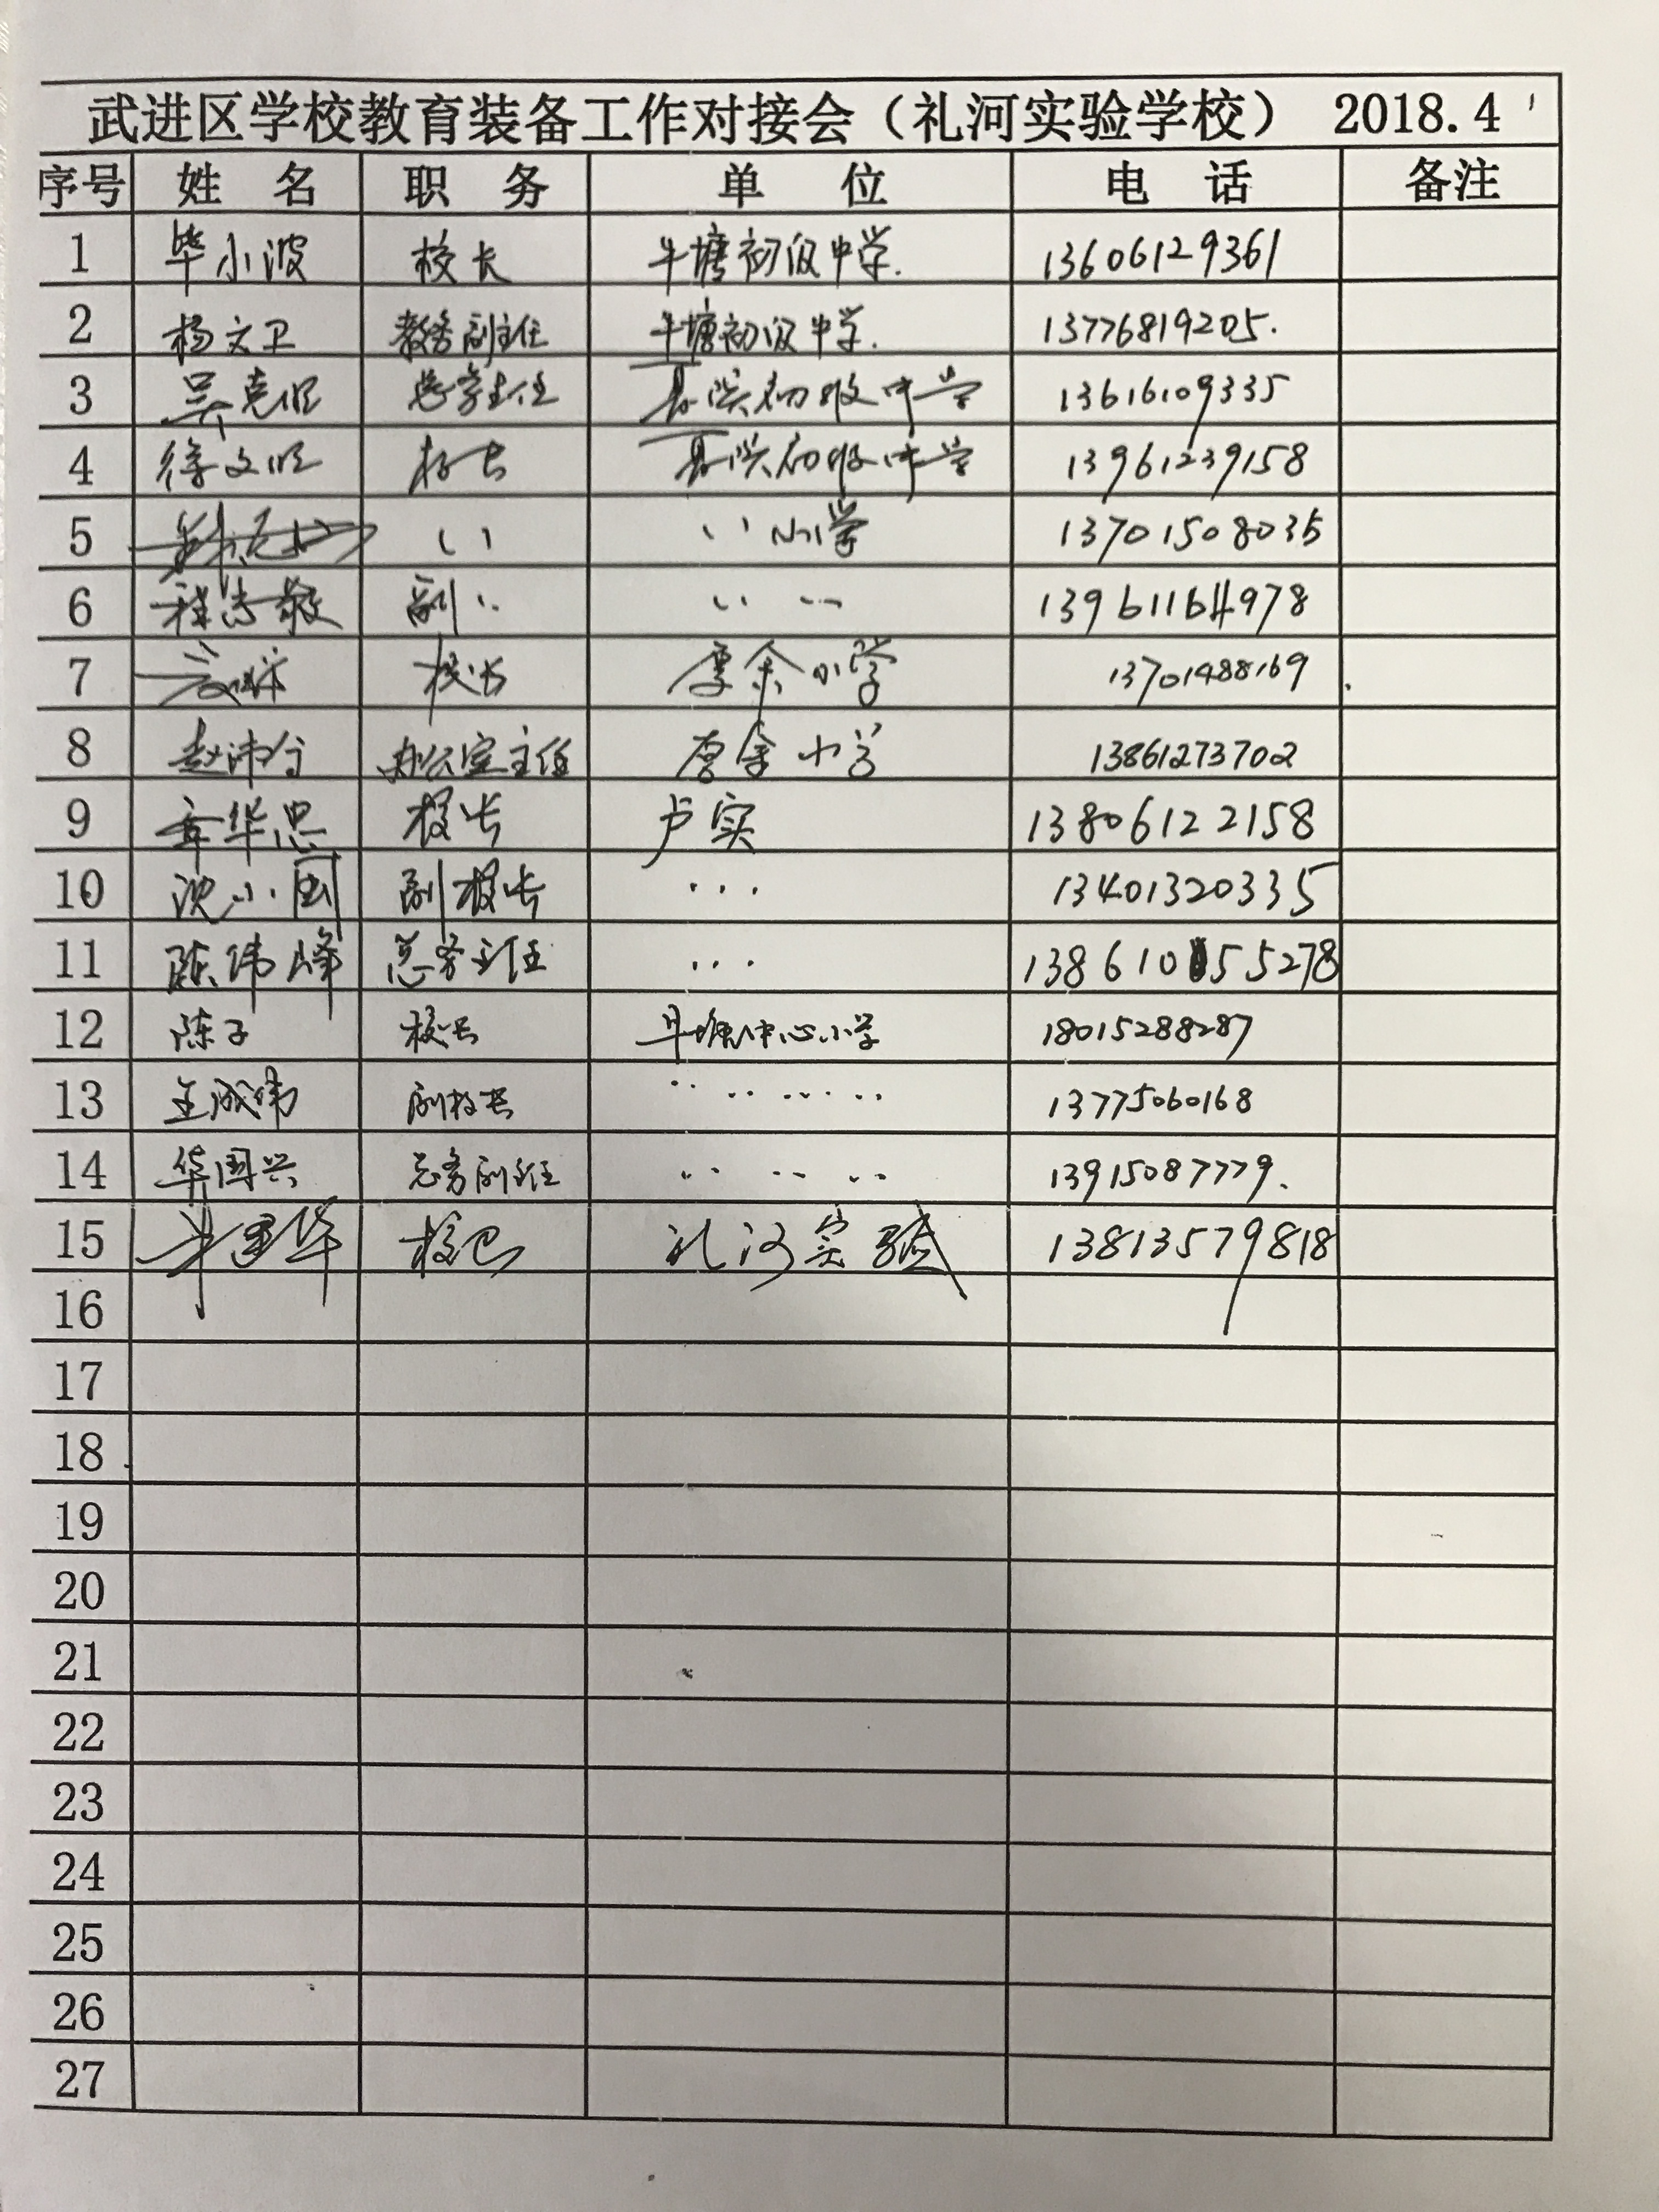 武进区学校教育装备工作对接会（礼河实验学校） 2018.4
序号 姓 名 职 务 单 位 电 话 备注
1 毕小波 校长 牛塘初级中学. 13606129361
2 杨文卫 教务副主任 牛塘初级中学. 13776819205.
3 吴克 总务主任 夏溪初级中学 13616109335
4 徐文 校长 夏溪初级中学 13961239158
5 〃 〃小学 13701508035
6 程志敏 副〃 〃 〃 13961164978
7 校长 厚余小学 13701488169
8 赵沛 办公室主任 厚余小学 13861273702
9 章华忠 校长 卢实 13806122158
10 沈小 副校长 ... 13401320335
11 陈伟峰 总务主任 ... 13861055278
12 陈子 校长 牛塘中心小学 18015288287
13 王成伟 副校长 〃 〃 〃 〃 13775060168
14 华国兴 总务副主任 〃 〃 〃 13915087779.
15 朱建华 校长 礼河实验 13813579818
16
17
18
19
20
21
22
23
24
25
26
27